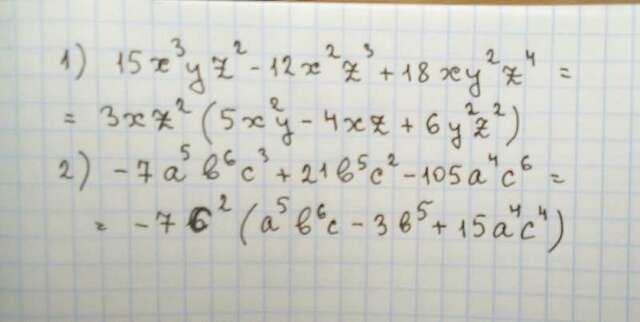 1) 15x³yz² - 12x²z³ + 18xy²z⁴ =
= 3xz² (5x²y - 4xz + 6y²z²)
2) -7a⁵b⁶c³ + 21b⁵c² - 105a⁴c⁶ =
= -7c² (a⁵b⁶c - 3b⁵ + 15a⁴c⁴)